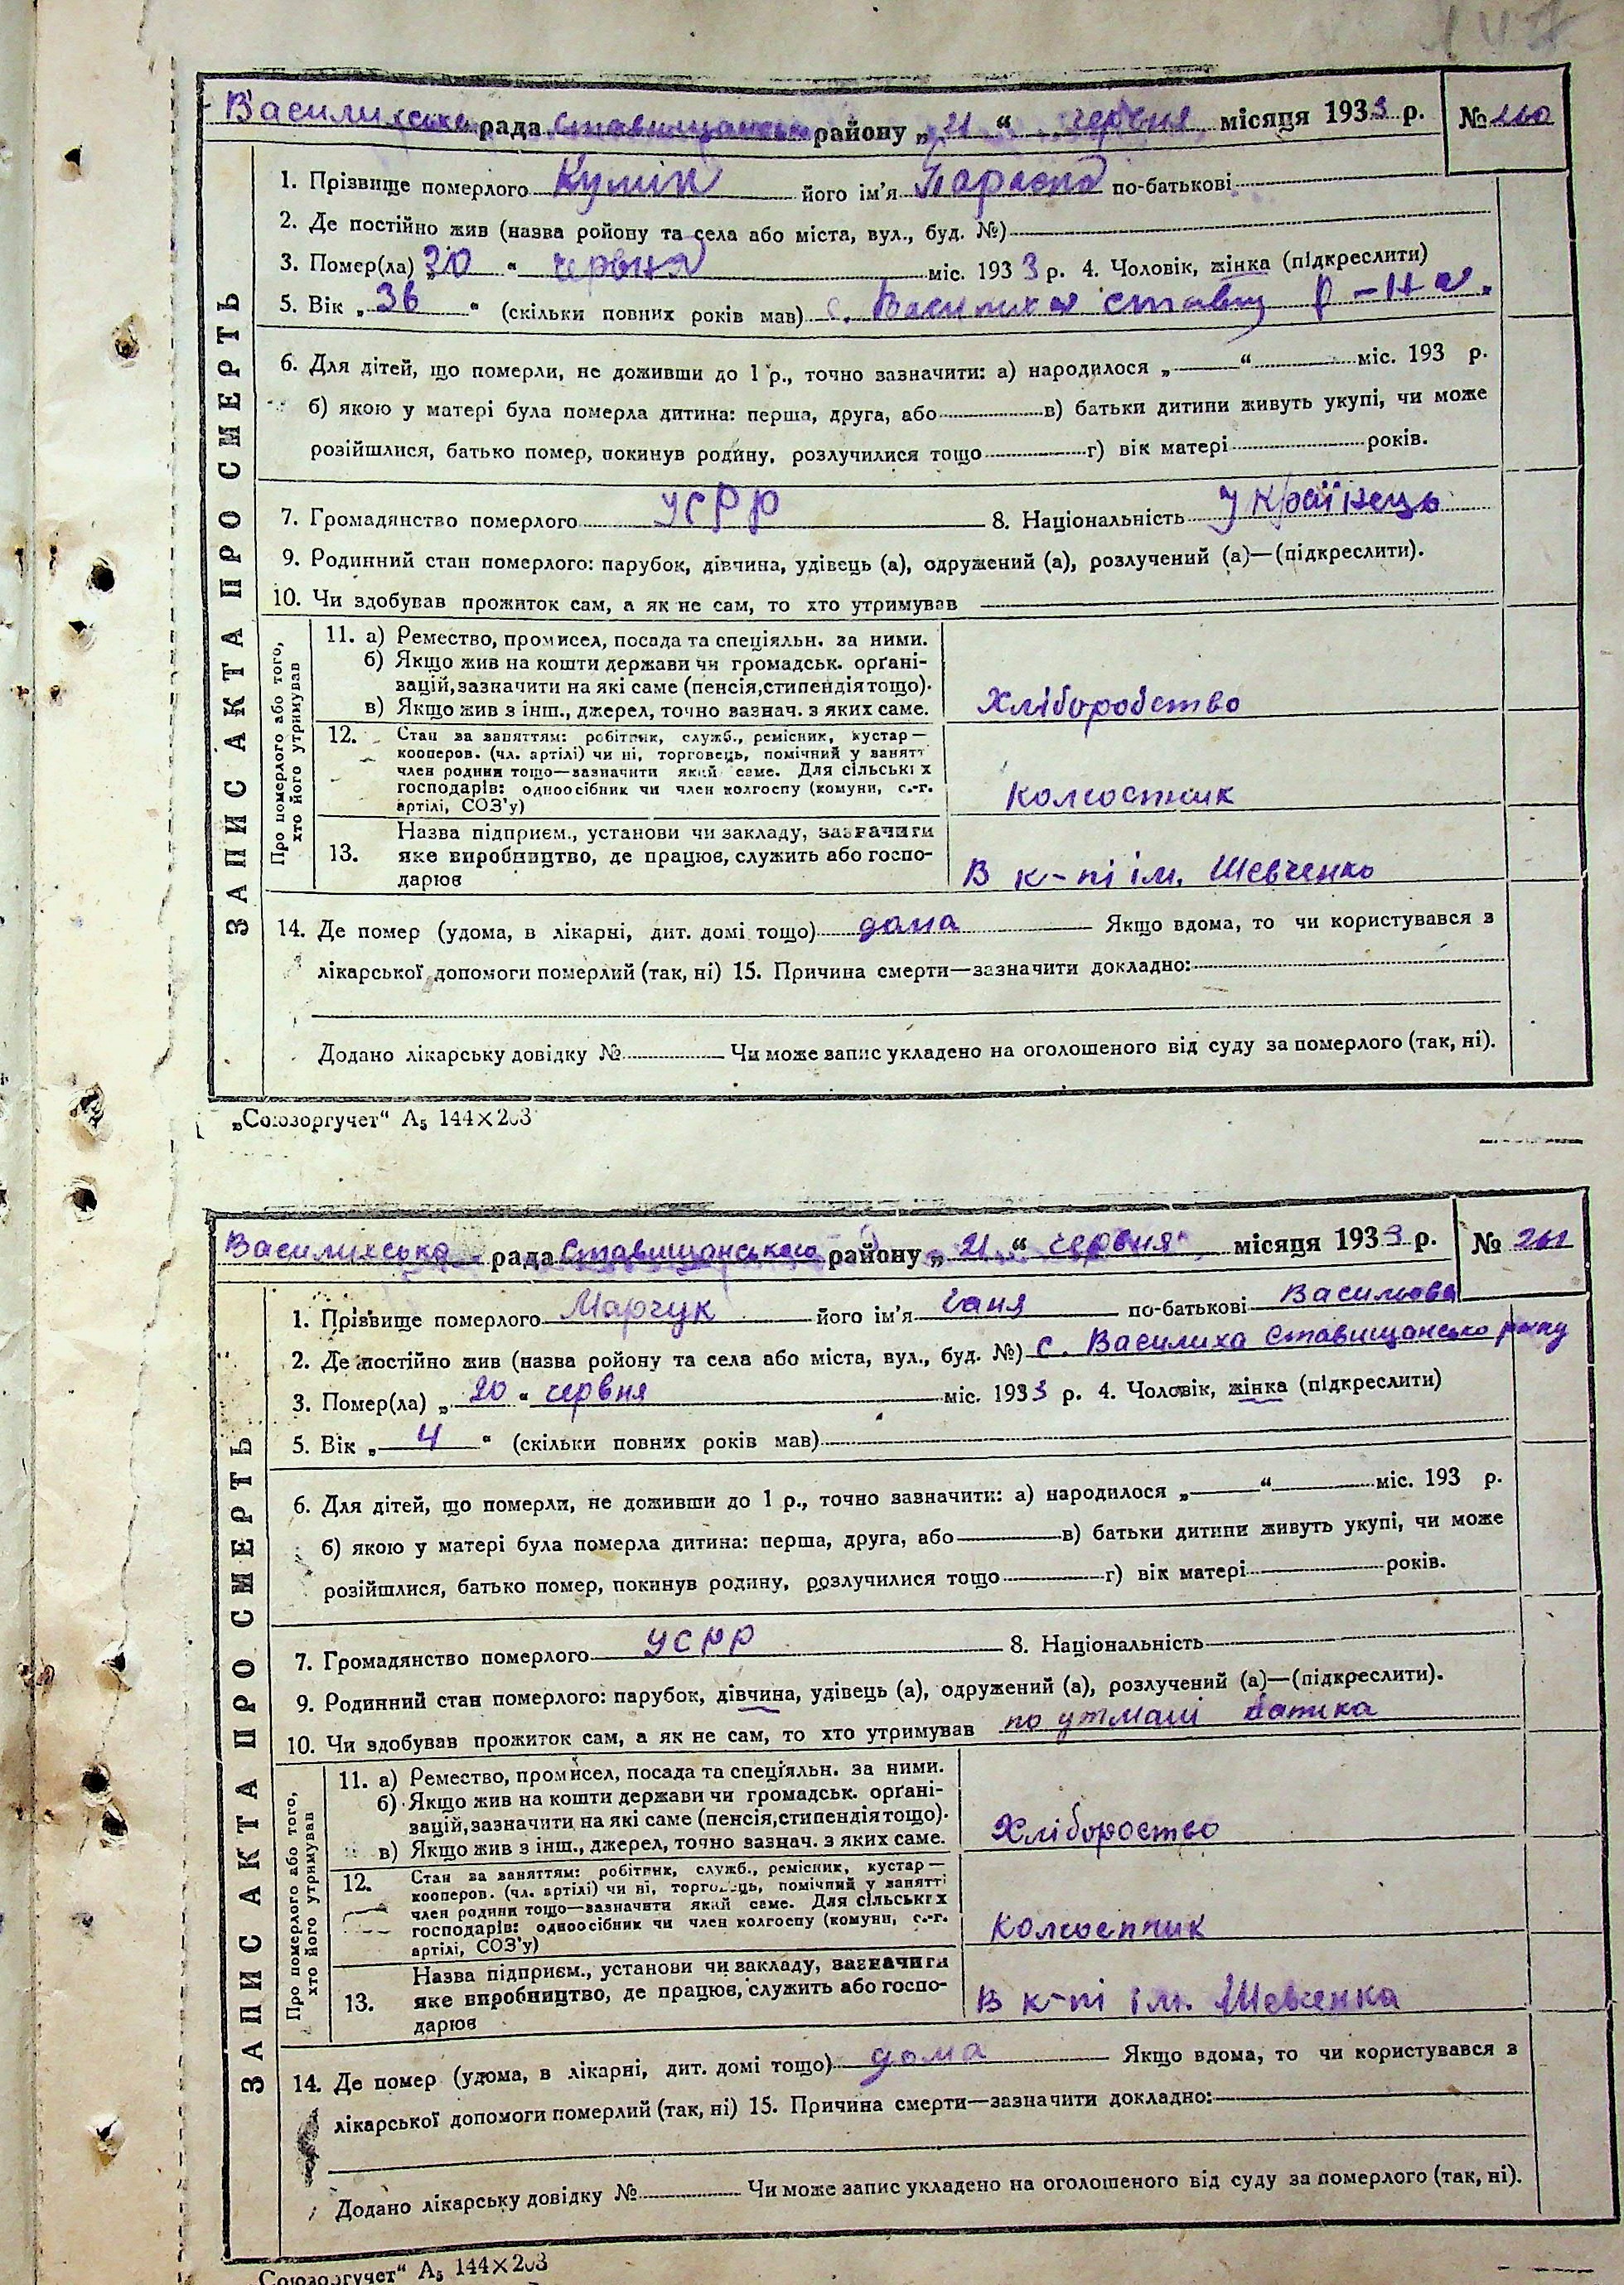 Василихська рада Ставищанськ району „21“ червня місяця 1933 р. №
1. Прізвище померлого Кулік його ім'я Параска по-батькові
2. Де постійно жив (назва ройону та села або міста, вул., буд. №)
3. Помер(ла) „20“ червня міс. 1933 р. 4. Чоловік, жінка (підкреслити)
5. Вік „36“ (скільки повних років мав) с. Василиха Ставищ р-на.
6. Для дітей, що померли, не доживши до 1 р., точно зазначити: а) народилося „ “ міс. 193 р.
б) якою у матері була померла дитина: перша, друга, або в) батьки дитини живуть укупі, чи може
розійшлися, батько помер, покинув родину, розлучилися тощо г) вік матері років.
7. Громадянство померлого УСРР 8. Національність Українець
9. Родинний стан померлого: парубок, дівчина, удівець (а), одружений (а), розлучений (а)—(підкреслити).
10. Чи здобував прожиток сам, а як не сам, то хто утримував
ЗАПИС АКТА ПРО СМЕРТЬ
Про померлого або того,
хто його утримував
11. а) Ремество, промисел, посада та спеціяльн. за ними.
б) Якщо жив на кошти держави чи громадськ. орґані-
зацій, зазначити на які саме (пенсія, стипендія тощо).
в) Якщо жив з інш., джерел, точно зазнач. з яких саме.
Хліборобство
12. Стан за заняттям: робітник, служб., ремісник, кустар—
кооперов. (чл. артілі) чи ні, торговець, помічний у занятті
член родини тощо—зазначити який саме. Для сільських
господарів: одноосібник чи член колгоспу (комуни, с.-г.
артілі, СОЗ'у)
Колгоспник
13. Назва підприєм., установи чи закладу, зазначити
яке виробництво, де працює, служить або госпо-
дарює
В к-пі ім. Шевченко
14. Де помер (удома, в лікарні, дит. домі тощо) дома Якщо вдома, то чи користувався з
лікарської допомоги померлий (так, ні) 15. Причина смерти—зазначити докладно:
Додано лікарську довідку № Чи може запис укладено на оголошеного від суду за померлого (так, ні).
„Союзоргучет“ А5 144×203
Василихська рада Ставищанського району „21“ червня місяця 1933 р. №
1. Прізвище померлого Марчук його ім'я Ганя по-батькові Васильова
2. Де постійно жив (назва ройону та села або міста, вул., буд. №) с. Василиха Ставищансько р-ну
3. Помер(ла) „20“ червня міс. 1933 р. 4. Чоловік, жінка (підкреслити)
5. Вік „4“ (скільки повних років мав)
6. Для дітей, що померли, не доживши до 1 р., точно зазначити: а) народилося „ “ міс. 193 р.
б) якою у матері була померла дитина: перша, друга, або в) батьки дитини живуть укупі, чи може
розійшлися, батько помер, покинув родину, розлучилися тощо г) вік матері років.
7. Громадянство померлого УСРР 8. Національність
9. Родинний стан померлого: парубок, дівчина, удівець (а), одружений (а), розлучений (а)—(підкреслити).
10. Чи здобував прожиток сам, а як не сам, то хто утримував по батька
ЗАПИС АКТА ПРО СМЕРТЬ
Про померлого або того,
хто його утримував
11. а) Ремество, промисел, посада та спеціяльн. за ними.
б) Якщо жив на кошти держави чи громадськ. орґані-
зацій, зазначити на які саме (пенсія, стипендія тощо).
в) Якщо жив з інш., джерел, точно зазнач. з яких саме.
Хлібороство
12. Стан за заняттям: робітник, служб., ремісник, кустар—
кооперов. (чл. артілі) чи ні, торговець, помічний у занятті
член родини тощо—зазначити який саме. Для сільських
господарів: одноосібник чи член колгоспу (комуни, с.-г.
артілі, СОЗ'у)
Колгоспник
13. Назва підприєм., установи чи закладу, зазначити
яке виробництво, де працює, служить або госпо-
дарює
В к-пі ім. Шевченка
14. Де помер (удома, в лікарні, дит. домі тощо) дома Якщо вдома, то чи користувався з
лікарської допомоги померлий (так, ні) 15. Причина смерти—зазначити докладно:
Додано лікарську довідку № Чи може запис укладено на оголошеного від суду за померлого (так, ні).
„Союзоргучет“ А5 144×203